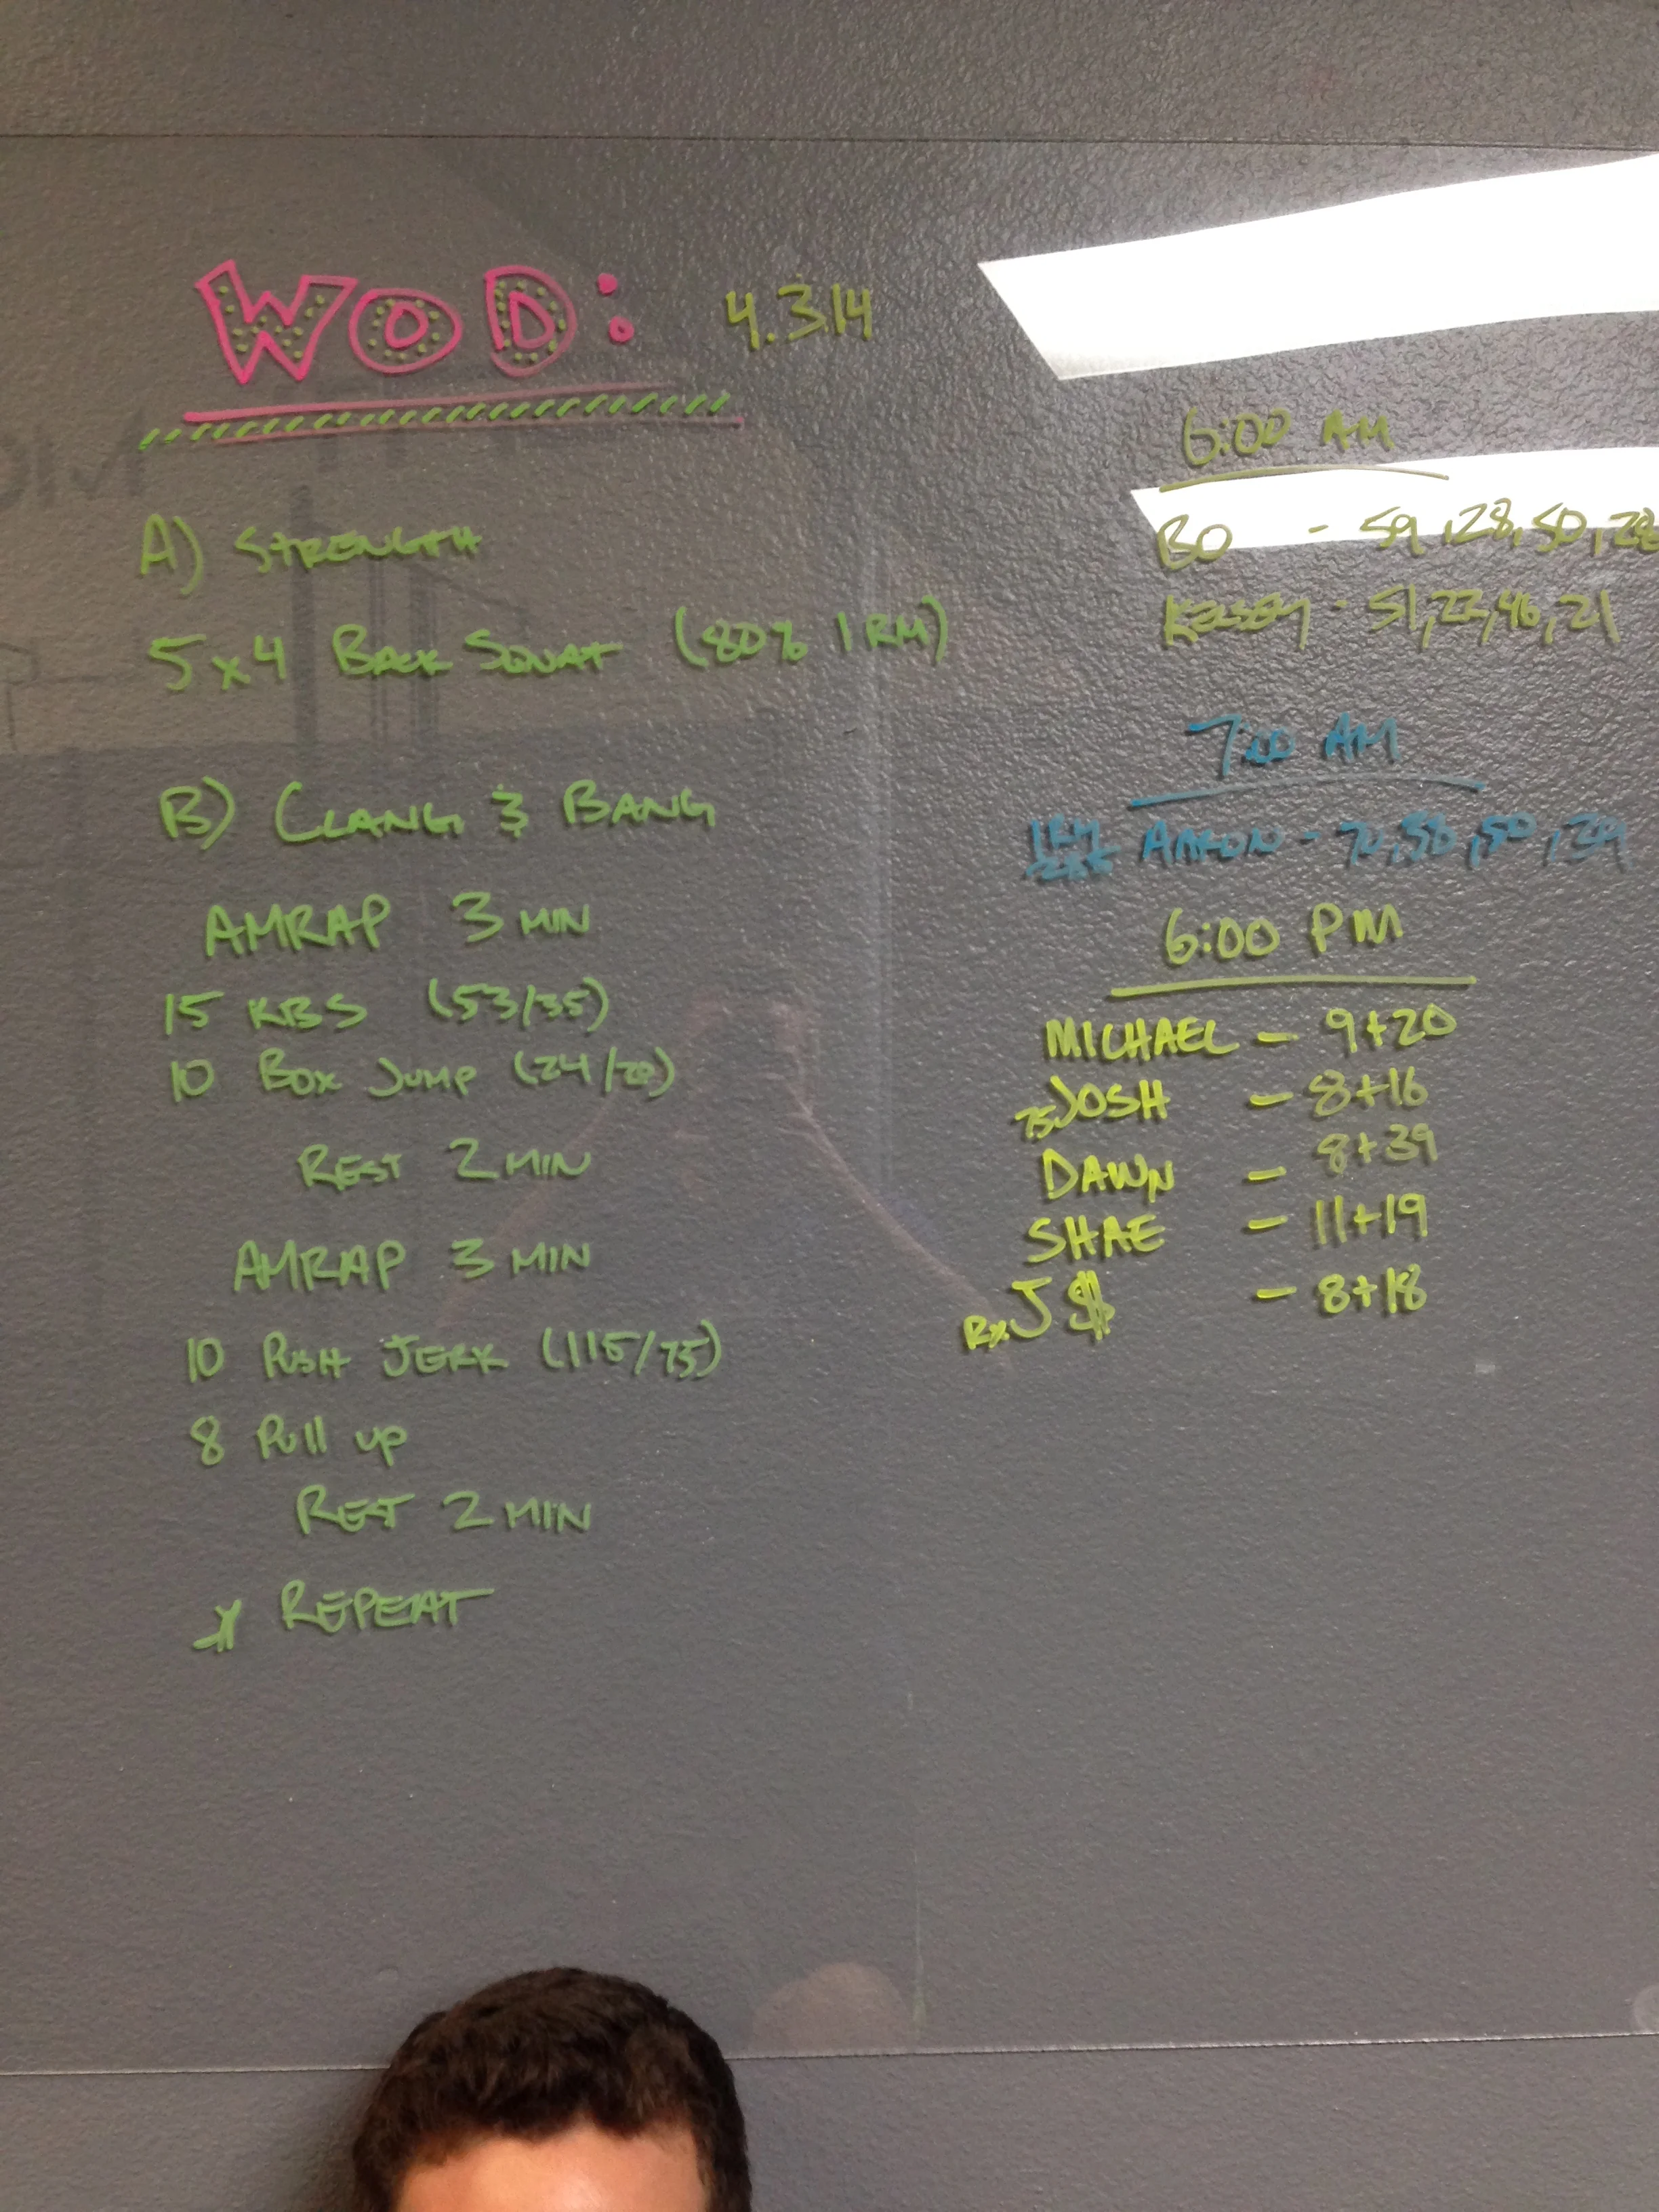 WOD: 4.3.14
A) STRENGTH
5 x 4 BACK SQUAT (80% 1 RM)
B) CLANG & BANG
AMRAP 3 MIN
15 KBS (53/35)
10 BOX JUMP (24/20)
REST 2 MIN
AMRAP 3 MIN
10 PUSH JERK (115/75)
8 Pull up
REST 2 MIN
* REPEAT
6:00 AM
BO - 59, 28, 50, 28
KELSEY - 51, 23, 46, 21
7:00 AM
1RM AARON - 70, 38, 50, 39
6:00 PM
MICHAEL - 9+20
75 JOSH - 8+16
DAWN - 8+39
SHAE - 11+19
Rx. J$ - 8+18